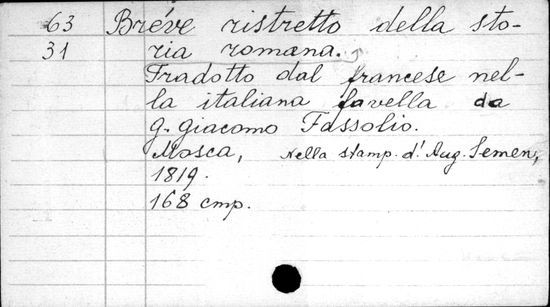 63 Bréve ristretto della sto-
31 ria romana.
Tradotto dal francese nel-
la italiana favella da
g. giacomo Fassolio.
Mosca, nella stamp. d'Aug. Semen,
1819.
168 стр.